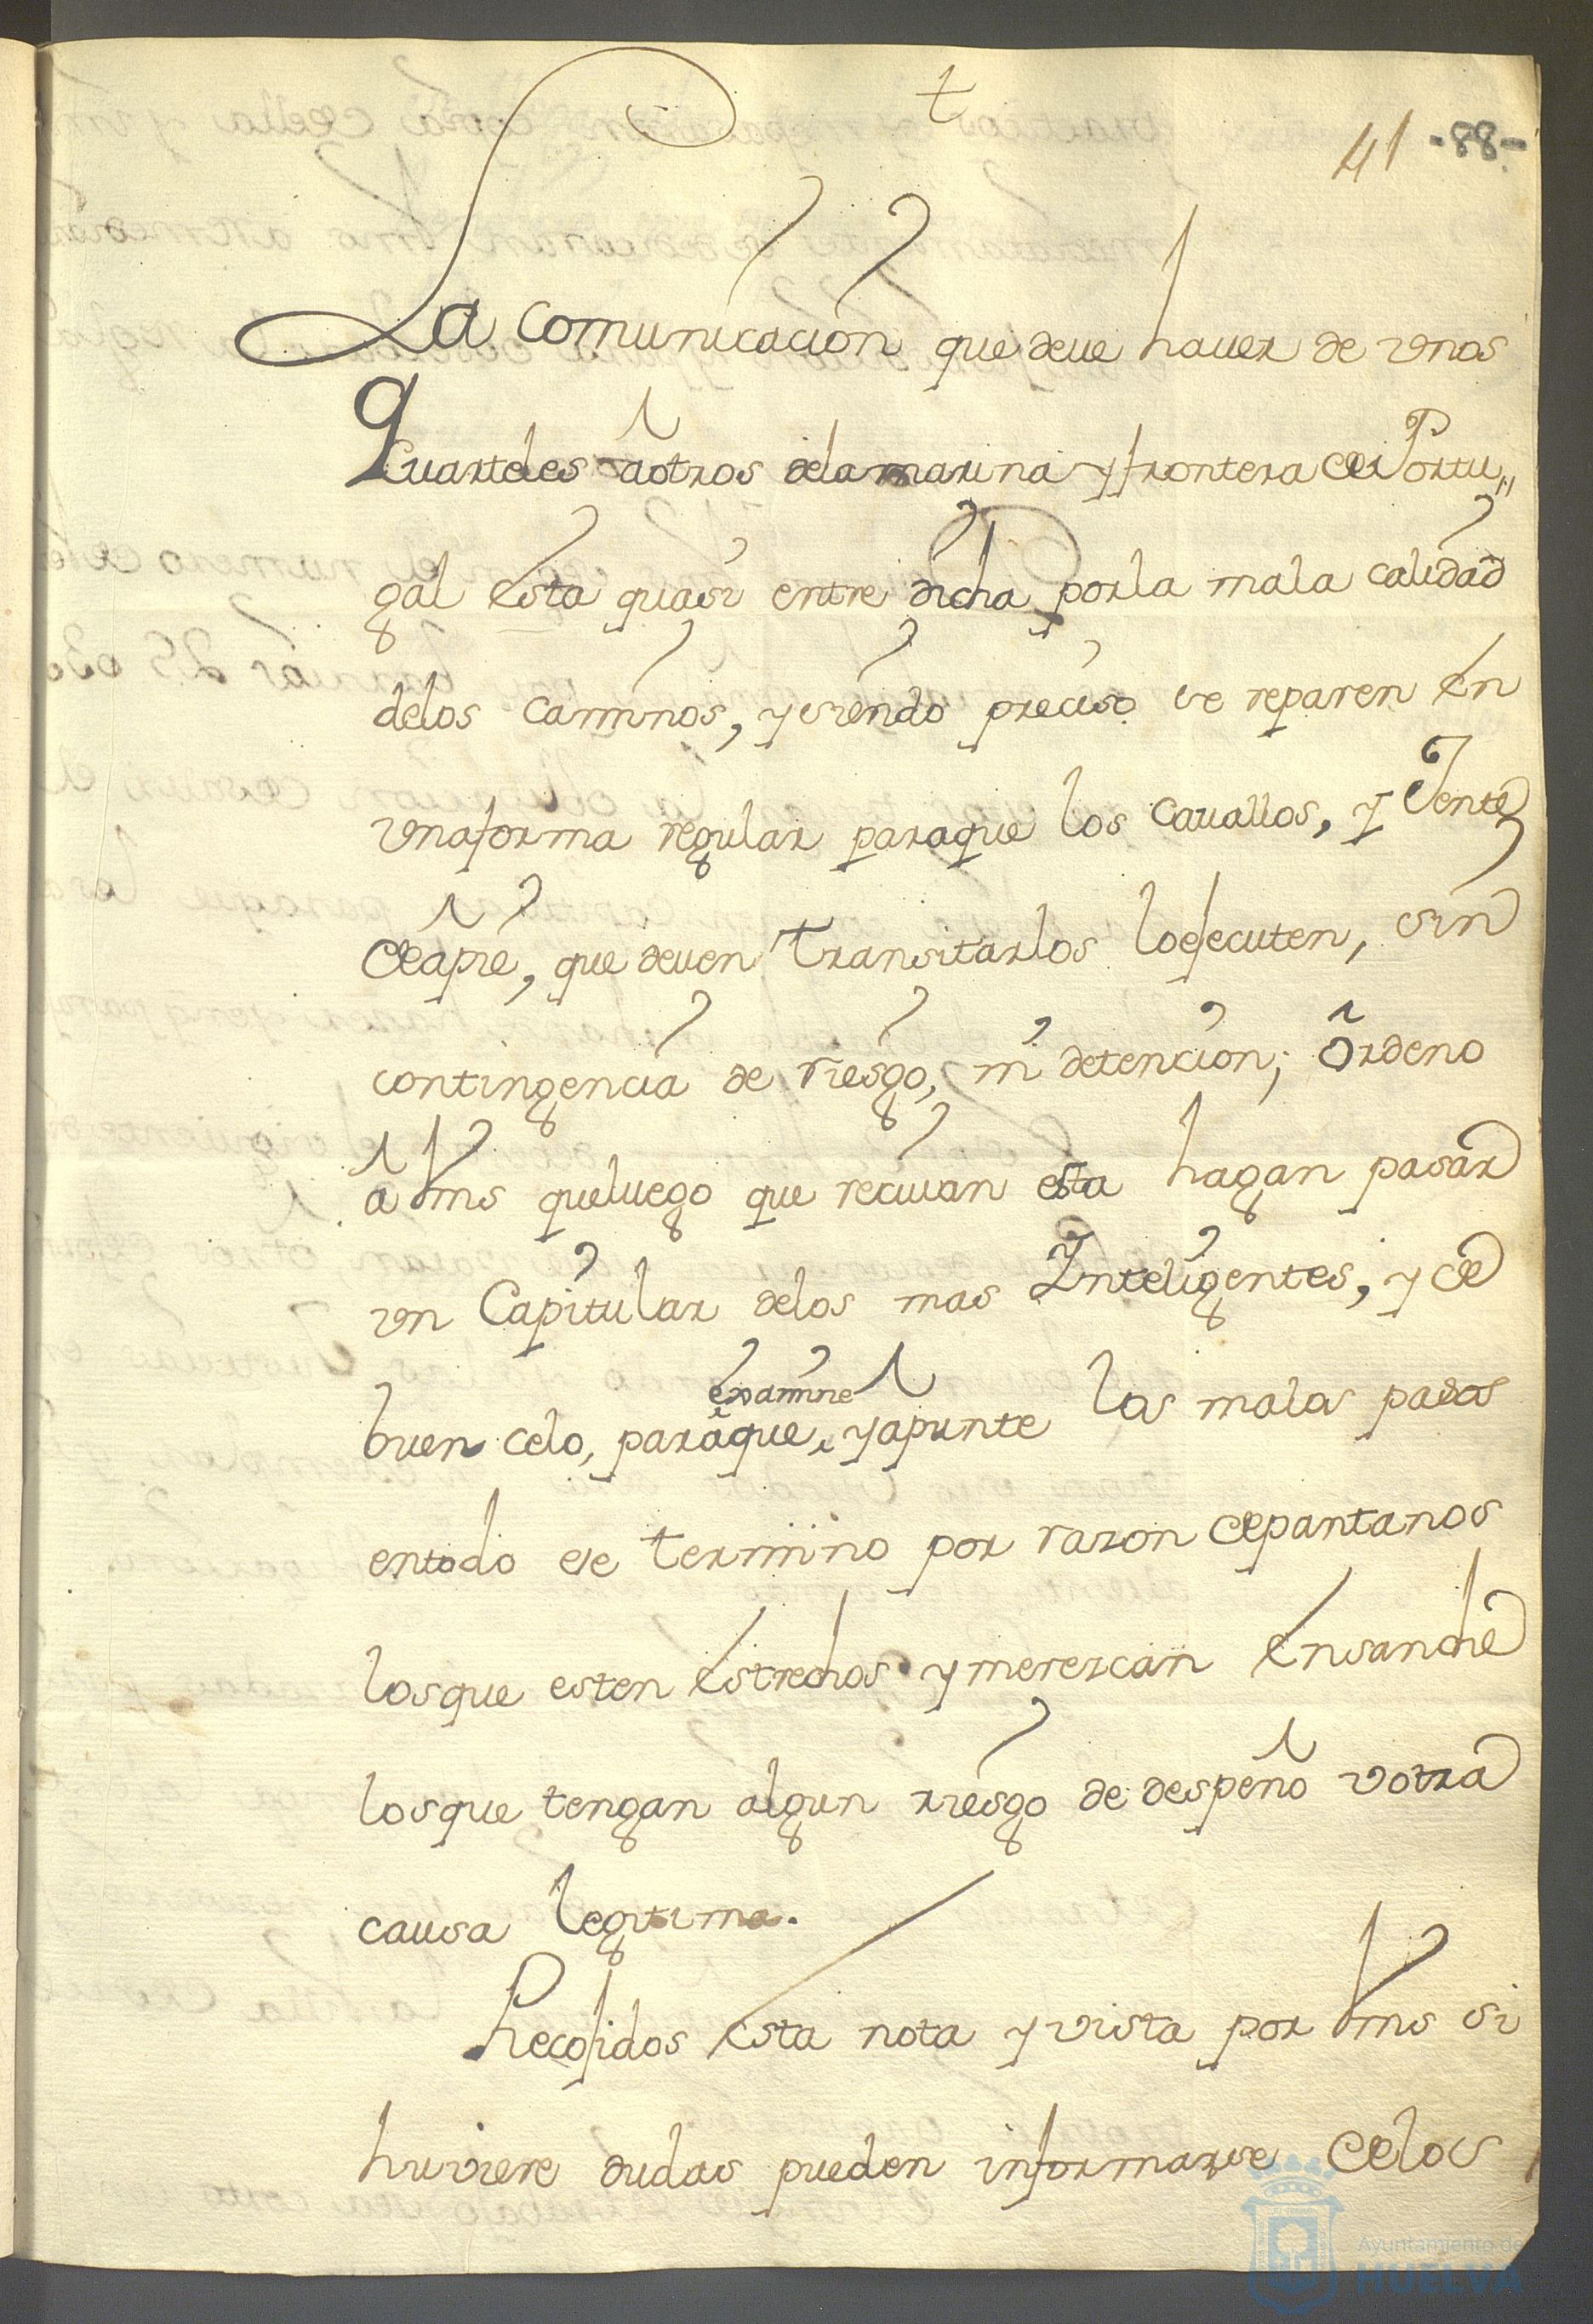 t
41 -88-
La comunicacion que deve haver de vnos
Quarteles aotros dela marina y frontera de Portu„
gal esta quasi entre dicha por la mala calidad
delos caminos, y siendo preciso se reparen en
vna forma regular paraque los cavallos, y Jente
de apie, que deven transitarlos lo ejecuten, sin
contingencia de riesgo, ni detencion; Ordeno
a Vms que luego que recivan esta hagan pasar
vn Capitular delos mas Inteligentes, y de
examine
buen celo, para que, y apunte los malos pasos
entodo ese termino por razon de pantanos
los que esten estrechos y merezcan ensanche
los que tengan algun riesgo de despeño v otra
causa legitima.
Recojidos esta nota y vista por Vms si
huviere dudas pueden informarse de los
Ayuntamiento de
HUELVA